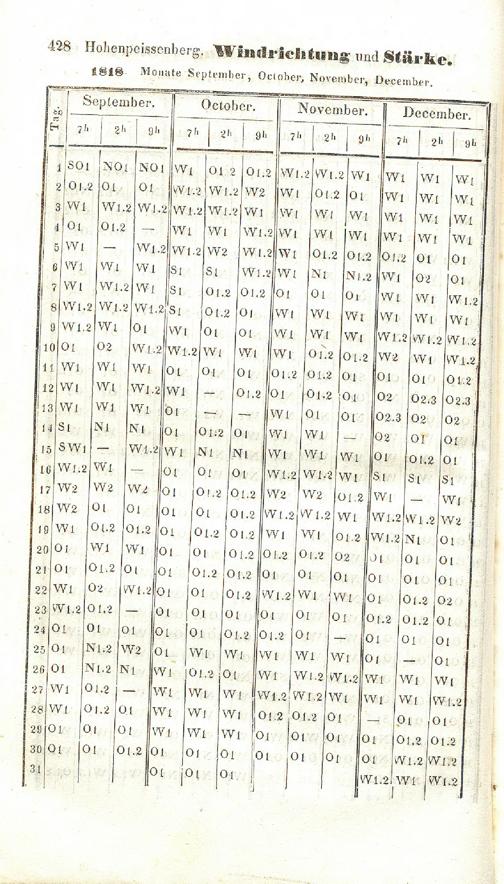 428 Hohenpeissenberg. Windrichtung und Stärke.
1818 Monate September, October, November, December.
Tag. September. October. November. December.
7h 2h 9h 7h 2h 9h 7h 2h 9h 7h 2h 9h
1 SO1 NO1 NO1 W1 O1.2 O1.2 W1.2 W1.2 W1 W1 W1 W1
2 O1.2 O1 O1 W1.2 W1.2 W2 W1 O1.2 O1 W1 W1 W1
3 W1 W1.2 W1.2 W1.2 W1.2 W1 W1 W1 W1 W1 W1 W1
4 O1 O1.2 — W1 W1 W1.2 W1 W1 W1 W1 W1 W1
5 W1 — W1.2 W1.2 W2 W1.2 W1 O1.2 O1.2 O1.2 O1 O1
6 W1 W1 W1 S1 S1 W1.2 W1 N1 N1.2 W1 O2 O1
7 W1 W1.2 W1 S1 O1.2 O1.2 O1 O1 O1 W1 W1 W1.2
8 W1.2 W1.2 W1.2 S1 O1.2 O1 W1 W1 W1 W1 W1 W1
9 W1.2 W1 O1 W1 O1 O1 W1 W1 W1 W1.2 W1.2 W1.2
10 O1 O2 W1.2 W1.2 W1 W1 W1 O1.2 O1.2 W2 W1 W1.2
11 W1 W1 W1 O1 O1 O1 O1.2 O1.2 O1.2 O1 O1 O1.2
12 W1 W1 W1.2 W1 — O1.2 O1 O1.2 O1 O2 O2.3 O2.3
13 W1 W1 W1 O1 — — W1 O1 O1 O2.3 O2 O2
14 S1 N1 N1 O1 O1.2 O1 W1 W1 — O2 O1 O1
15 SW1 — W1.2 W1 N1 N1 W1 W1 W1 O1 O1.2 O1
16 W1.2 W1 — O1 O1 O1 W1.2 W1.2 W1 S1 S1 S1
17 W2 W2 W2 O1 O1.2 O1.2 W2 W2 O1.2 W1 — W1
18 W2 O1 O1 O1 O1.2 O1.2 W1.2 W1.2 W1 W1.2 W1.2 W2
19 W1 O1.2 O1.2 O1 O1.2 O1.2 W1 W1 O1.2 W1.2 N1 O1
20 O1 W1 W1 O1 O1 O1.2 O1.2 O1.2 O2 O1 O1 O1
21 O1 O1.2 O1 O1 O1.2 O1.2 O1 O1 O1 O1 O1 O1
22 W1 O2 W1.2 O1 O1 O1.2 W1.2 W1 W1 O1 O1.2 O2
23 W1.2 O1.2 — O1 O1 O1 O1 O1 O1 O1.2 O1.2 O1.2
24 O1 O1 O1 O1 O1 O1.2 O1.2 O1 — O1 O1 O1
25 O1 N1.2 W2 O1 W1 W1 W1 W1 W1 O1 — O1
26 O1 N1.2 N1 W1 O1.2 O1 W1 W1.2 W1.2 W1 W1 W1
27 W1 O1.2 — W1 W1 W1 W1.2 W1.2 W1 W1 W1 W1.2
28 W1 O1.2 O1 W1 W1 W1 O1.2 O1.2 O1 — O1 O1
29 O1 O1 O1 W1 W1 W1 O1 O1 O1 O1 O1.2 O1.2
30 O1 O1 O1.2 O1 O1 O1 O1 O1 O1 O1 W1.2 W1.2
31 O1 O1 O1 W1.2 W1 W1.2